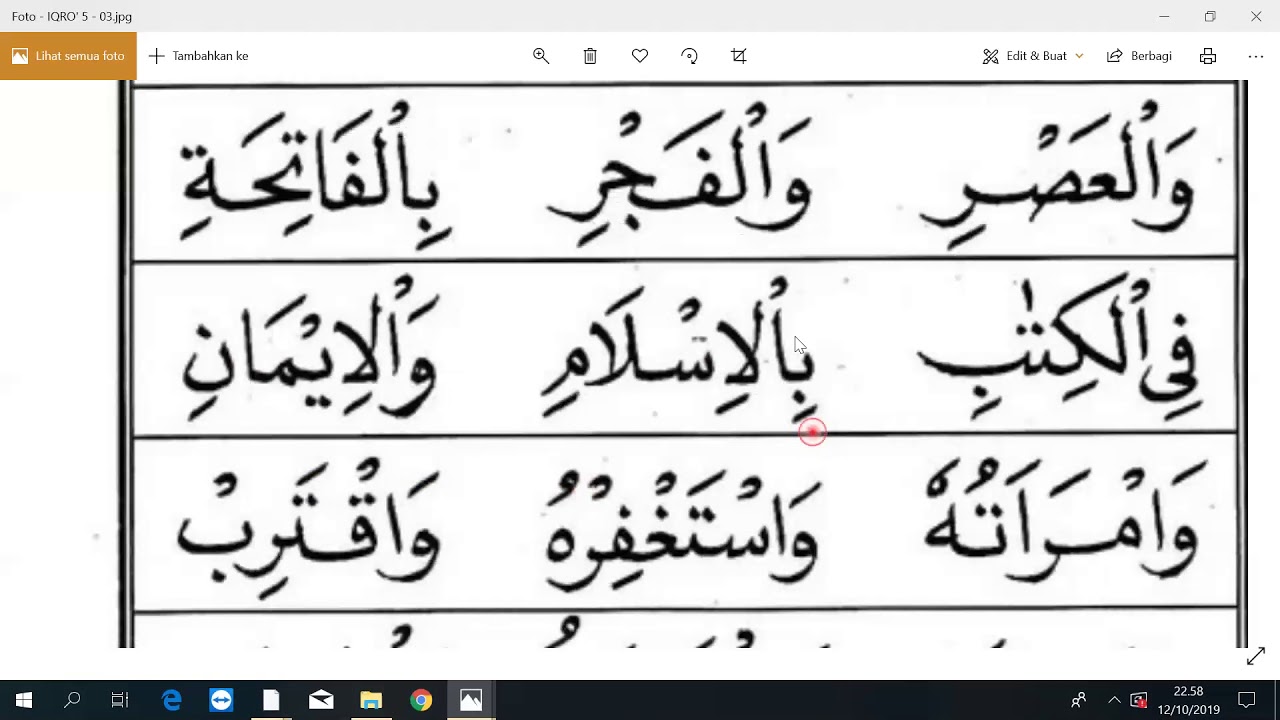 Foto - IQRO' 5 - 03.jpg
Lihat semua foto
Tambahkan ke
Edit & Buat
Berbagi
وَالْعَصْرِ وَالْفَجْرِ بِالْفَاتِحَةِ
فِى الْكِتٰبِ بِالْاِسْلَامِ وَالْاِيْمَانِ
وَامْرَاَتُهٗ وَاسْتَغْفِرْهُ وَاقْتَرِبْ
22.58
12/10/2019